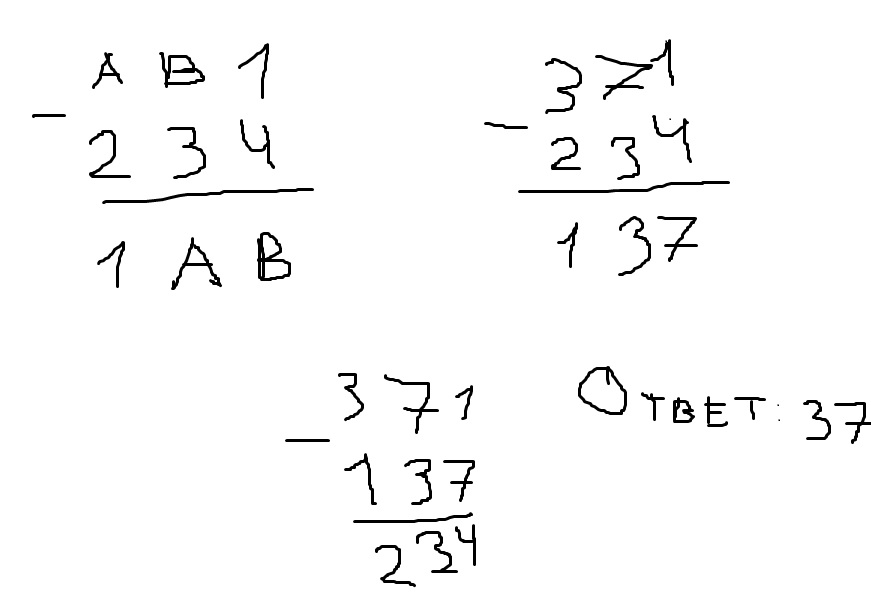 A B 1
- 
2 3 4
1 A B
3 7 1
- 
2 3 4
1 3 7
3 7 1
- 
1 3 7
2 3 4
Ответ: 37